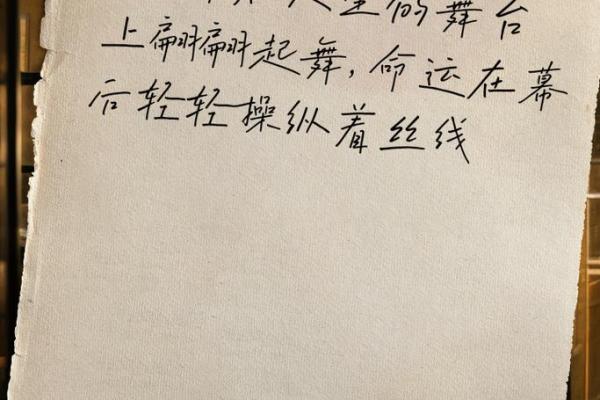 的舞台
上翩翩起舞，命运在幕
后轻轻操纵着丝线